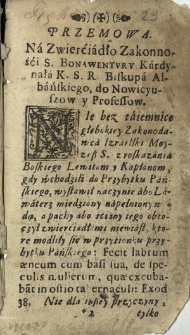 29
PRZEMOWA.
Ná Zwierćiádło Zakonno-
śći S. BONAWENTURY Kárdy-
nałá K. S. R. Biskupá Al-
báńskiego, do Nowicyu-
szow y Professow.
NIe bez táiemnice
głębokiey Zakonoda-
wcá Izráelski Moy-
zesz z roskazánia
Boskiego Lewitom y Kapłánom,
gdy wchodzili do Przybytku Páń-
skiego, wystáwił naczynie ábo Lá-
wáterz miedziány nápełniony wo-
dą, á páchy ábo sćiány tego obto-
czył zwierćiadłámi niewiast, kto-
re modliły się w przysionku przy-
bytku Páńskiego: Fecit labrum
æneum cum basi sua, de spe-
culis mulierum, quæ excuba-
bant in ostio tabernaculi: Exod
38. Nie dla inszey przyczyny,
*2 tylko